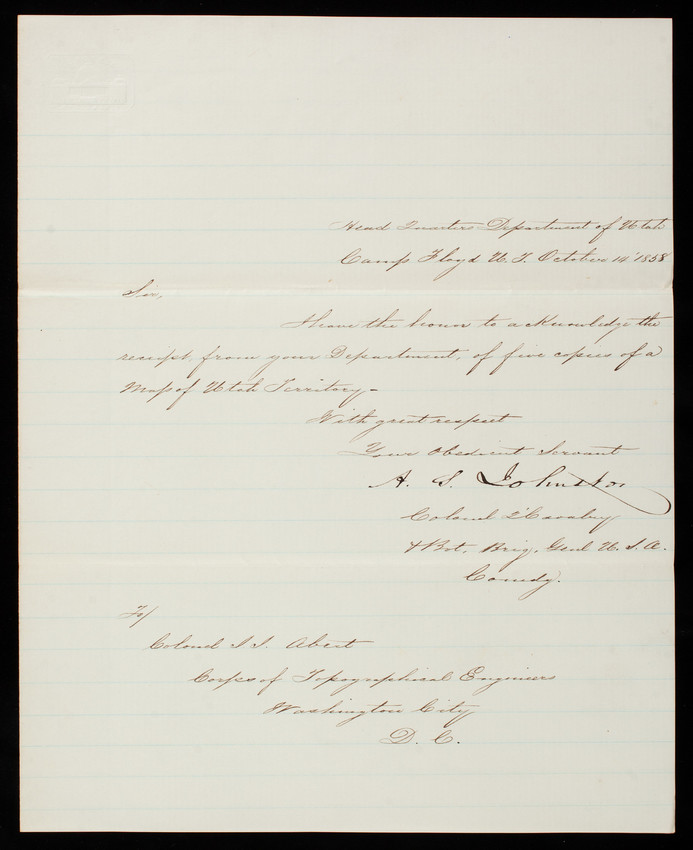 Head Quarters Department of Utah
Camp Floyd U. T. October 14' 1858
Sir,
I have the honor to acknowledge the
receipt, from your Department, of five copies of a
Map of Utah Territory -
With great respect
Your obedient Servant
A. S. Johnston
Colonel 2' Cavalry
& Bvt. Brig. Genl U. S. A.
Comdg.
To/
Colonel J. J. Abert
Corps of Topographical Engineers
Washington City
D. C.